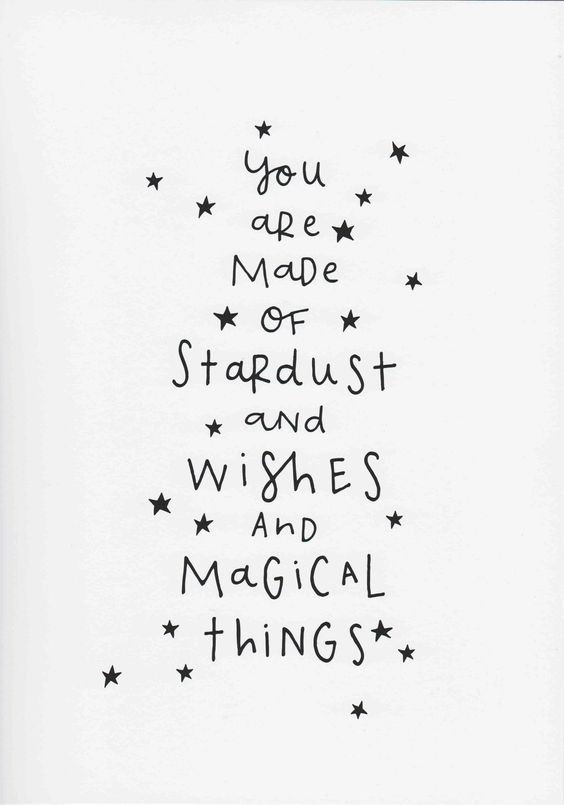 you
aRe
MaDe
OF
StaRdust
aNd
WiShES
AnD
MaGiCAL
thiNGS